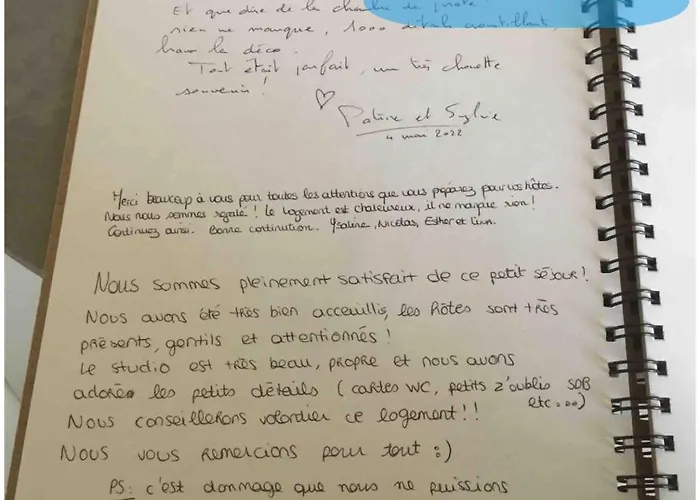 Et que dire de la chambre de pirate
rien ne manque, 1000 détails croustillant,
la déco.
Tout était parfait, un très chouette
souvenir !
Patrice et Sylvie
4 mai 2022
Merci beaucoup à vous pour toutes les attentions que vous préparez pour vos hôtes.
Nous nous sommes régalé ! Le logement est chaleureux, il ne manque rien !
Continuez ainsi. Bonne continuation. Ysaline, Nicolas, Esther et
Nous sommes pleinement satisfait de ce petit séjour !
Nous avons été très bien acceuillis, les hôtes sont très
présents, gentils et attentionnés !
Le studio est très beau, propre et nous avons
adorés les petits détails (cartes WC, petits z'oublis SDB
etc...)
Nous conseillerons volontier ce logement !!
Nous vous remercions pour tout :)
PS: c'est dommage que nous ne puissions